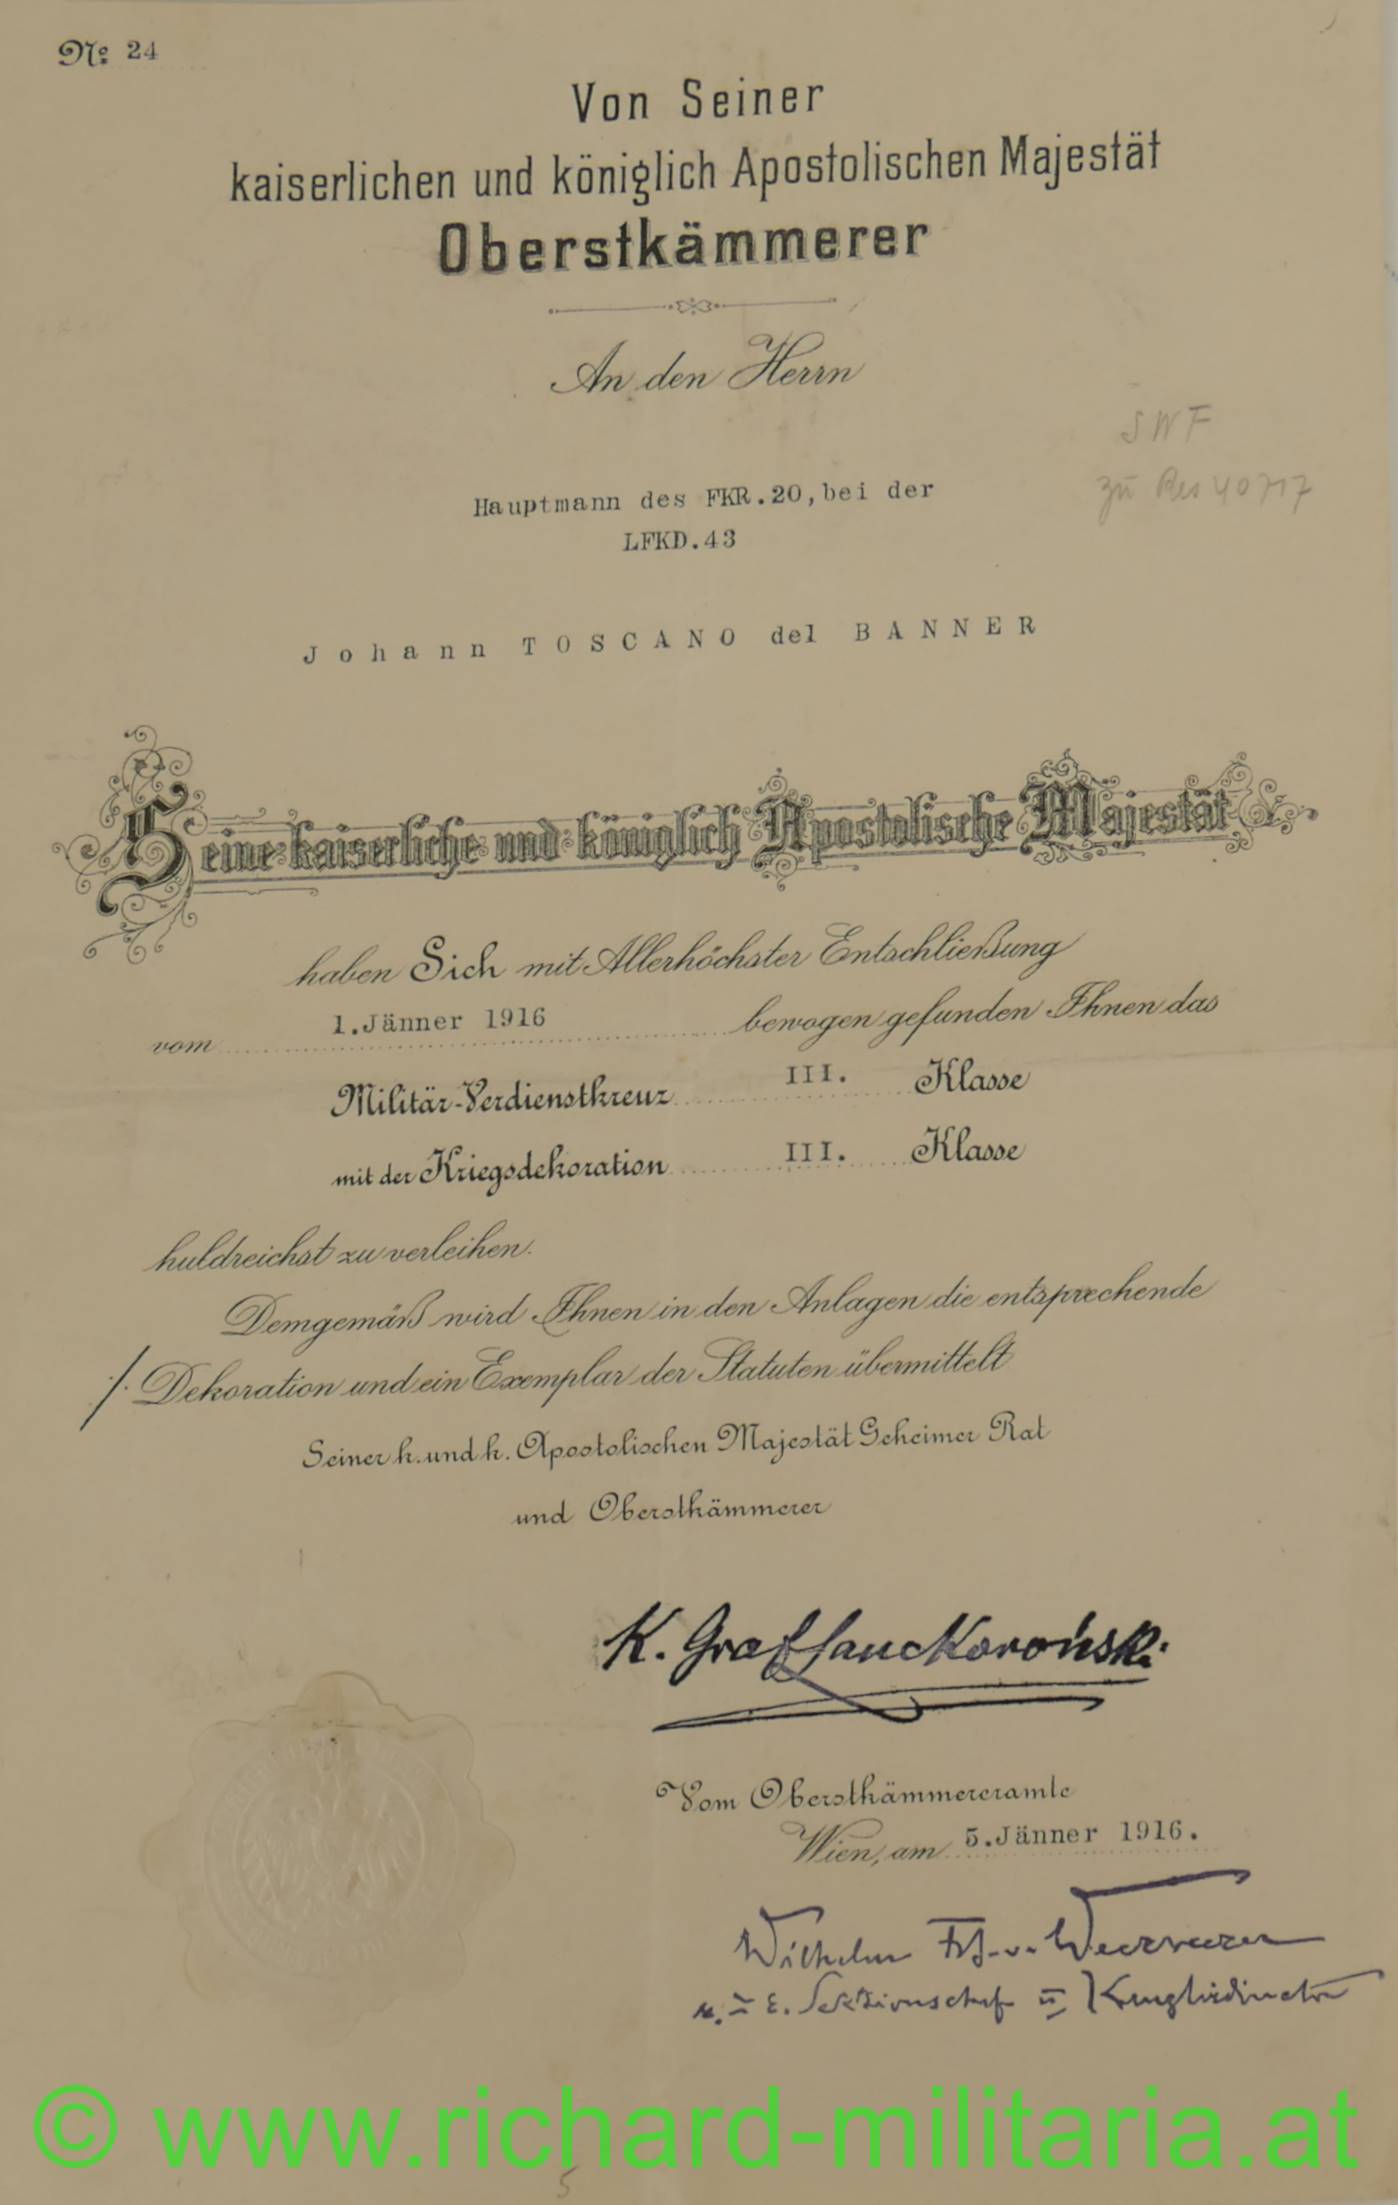 № 24
Von Seiner
kaiserlichen und königlich Apostolischen Majestät
Oberstkämmerer
An den Herrn
SWF
zu Res 40717
Hauptmann des FKR.20, bei der
LFKD.43
Johann TOSCANO del BANNER
Seine kaiserliche und königlich Apostolische Majestät
haben Sich mit Allerhöchster Entschließung
vom 1.Jänner 1916 bewogen gefunden Ihnen das
Militär-Verdienstkreuz III. Klasse
mit der Kriegsdekoration III. Klasse
huldreichst zu verleihen.
Demgemäß wird Ihnen in den Anlagen die entsprechende
/. Dekoration und ein Exemplar der Statuten übermittelt
Seiner k. und k. Apostolischen Majestät Geheimer Rat
und Oberstkämmerer
K. Graf Lanckoroński
Vom Oberstkämmereramte
Wien, am 5.Jänner 1916.
Wilhelm Frh. v. Weckbecker
Sektionschef u. Kanzleidirektor
© www.richard-militaria.at
5